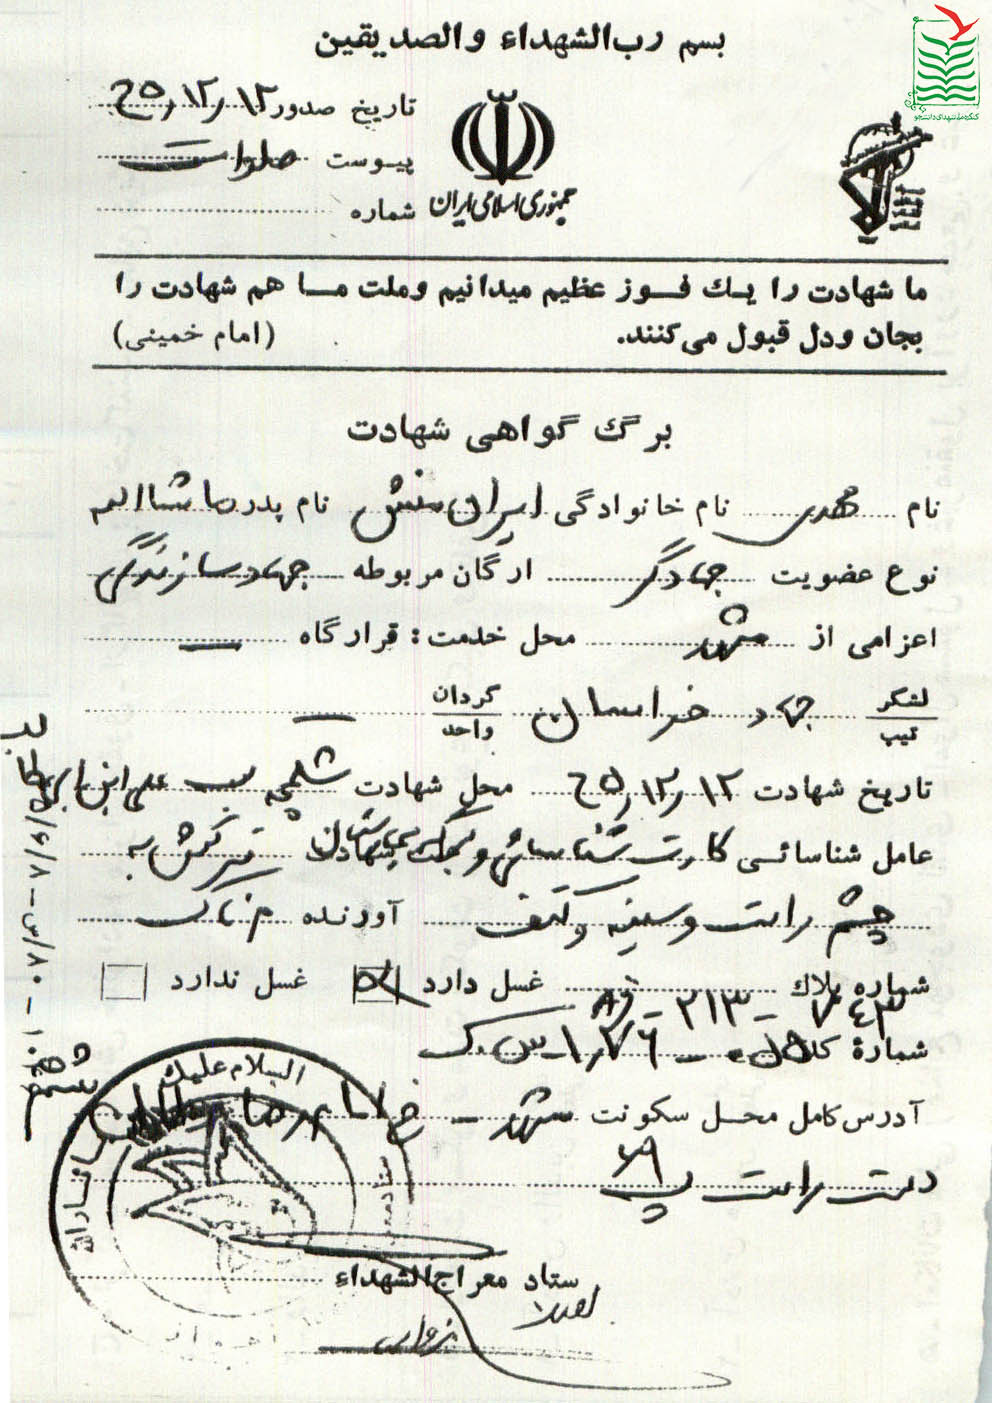 بسم رب‌الشهداء والصدیقین
کنگره ملی شهدای دانشجو
تاریخ صدور ۶۵/۱۲/۱۲
پیوست صلوات
شماره
جمهوری اسلامی ایران
ما شهادت را یک فوز عظیم میدانیم وملت ما هم شهادت را
بجان ودل قبول می‌کنند. (امام خمینی)
برگ گواهی شهادت
نام مهدی نام خانوادگی ایران منش نام پدر ماشاالله
نوع عضویت جهادگر ارگان مربوطه جهاد سازندگی
اعزامی از مشهد محل خدمت: قرارگاه —
لشکر تیپ جهاد خراسان گردان واحد —
تاریخ شهادت ۶۵/۱۲/۱۲ محل شهادت شلمچه علی ابن ابی
عامل شناسائی کارت شناسائی و شهادت ترکش به
چشم راست و سینه و کتف آورنده
شماره پلاك غسل دارد غسل ندارد
شمارهٔ
آدرس کامل محل سکونت مشهد — خ امام رضا
دست راست پ
السلام علیک
ستاد معراج‌الشهداء